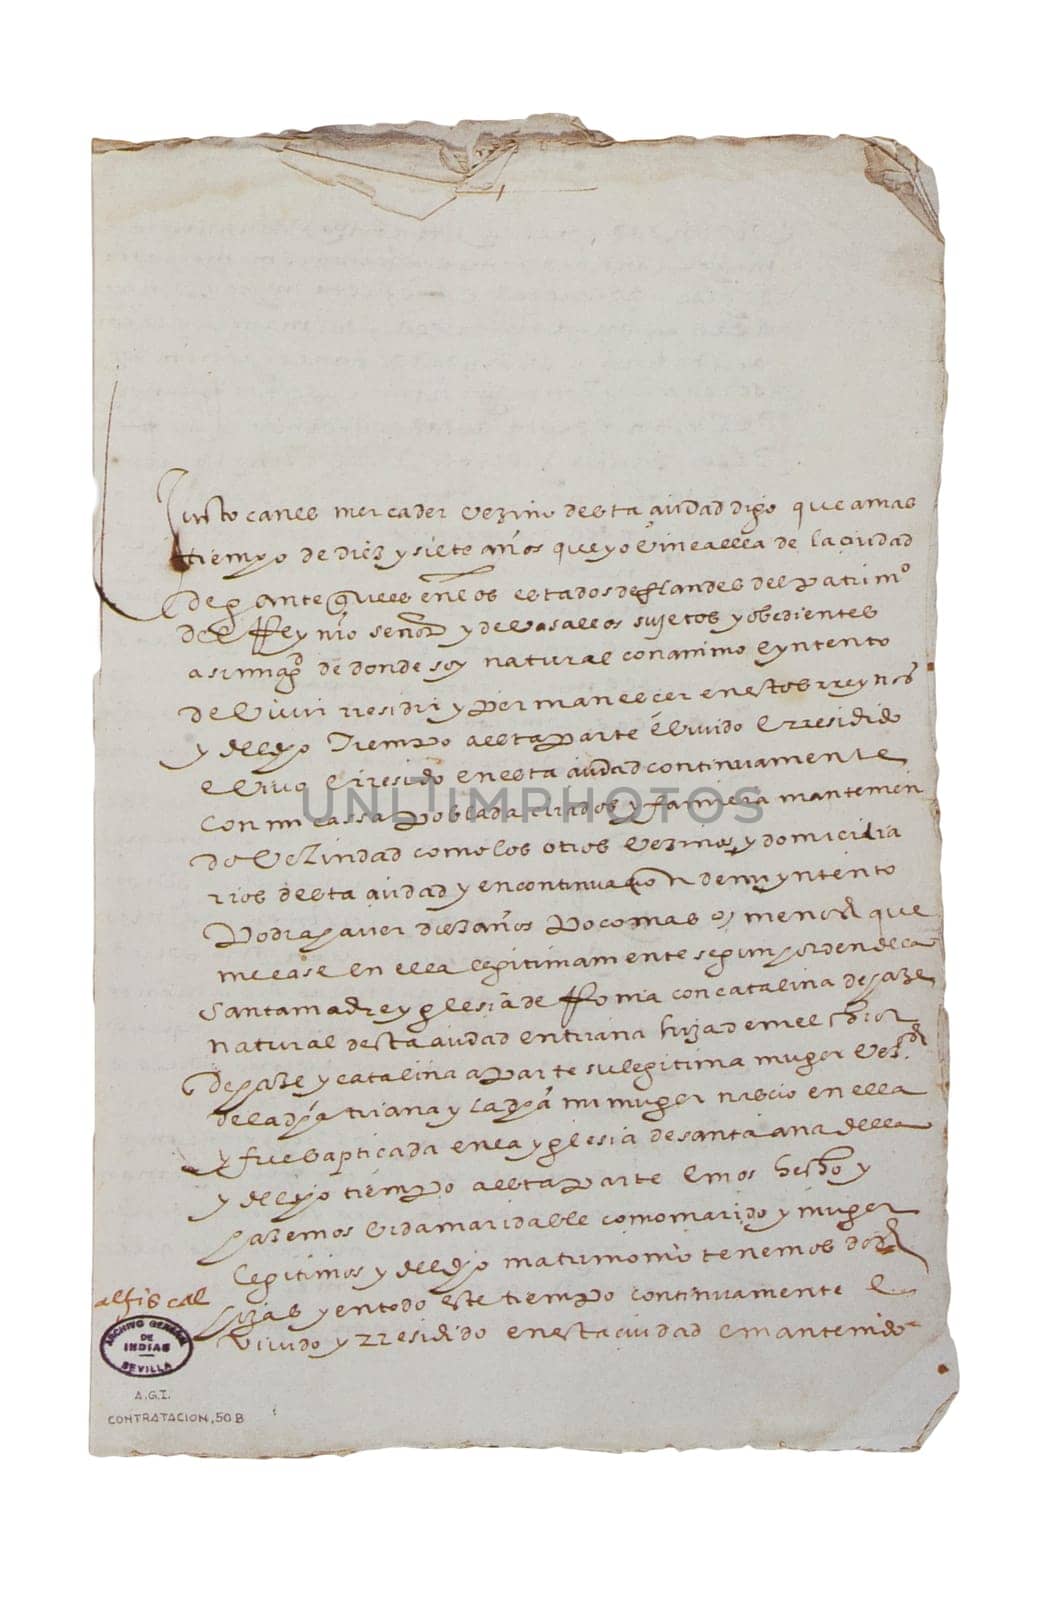 Justo canes mercader vezino desta ciudad digo que a mas
tiempo de diez y siete años que yo vine a ella de la ciudad
de gante que es en los estados de flandes del patrimº
del Rey nro señor y de vasallos sujetos y obedientes
a su magd de donde soy natural con animo e yntento
de vivir rresidir y permanescer en estos rreynos
y del dho tiempo a esta parte e vivido e rresidido
e vivo e rresido en esta ciudad continuamente
con mi cassa poblada criados y familia mantenien
do vezindad como los otros vezinos y domicilia
rios desta ciudad y en continuaçion de mi yntento
podra haver diez años poco mas o menos que
me case en ella legitimamente segun horden de la
santa madre yglesia de Roma con catalina de paze
natural desta ciudad en triana hija de melchior
de paze y catalina aparte su legitima muger vezs
de la dha triana y la dha mi muger nascio en ella
y fue baptiçada en la yglesia de santa ana della
y del dho tiempo a esta parte emos hecho y
hazemos vida maridable como marido y muger
legitimos y del dho matrimonio tenemos dos
hijas y en todo este tiempo continuamente e
vivido y rresidido en esta ciudad e mantenido
al fiscal
ARCHIVO GENERAL
DE
INDIAS
SEVILLA
A.G.I.
CONTRATACION, 50 B
UNLIMPHOTOS